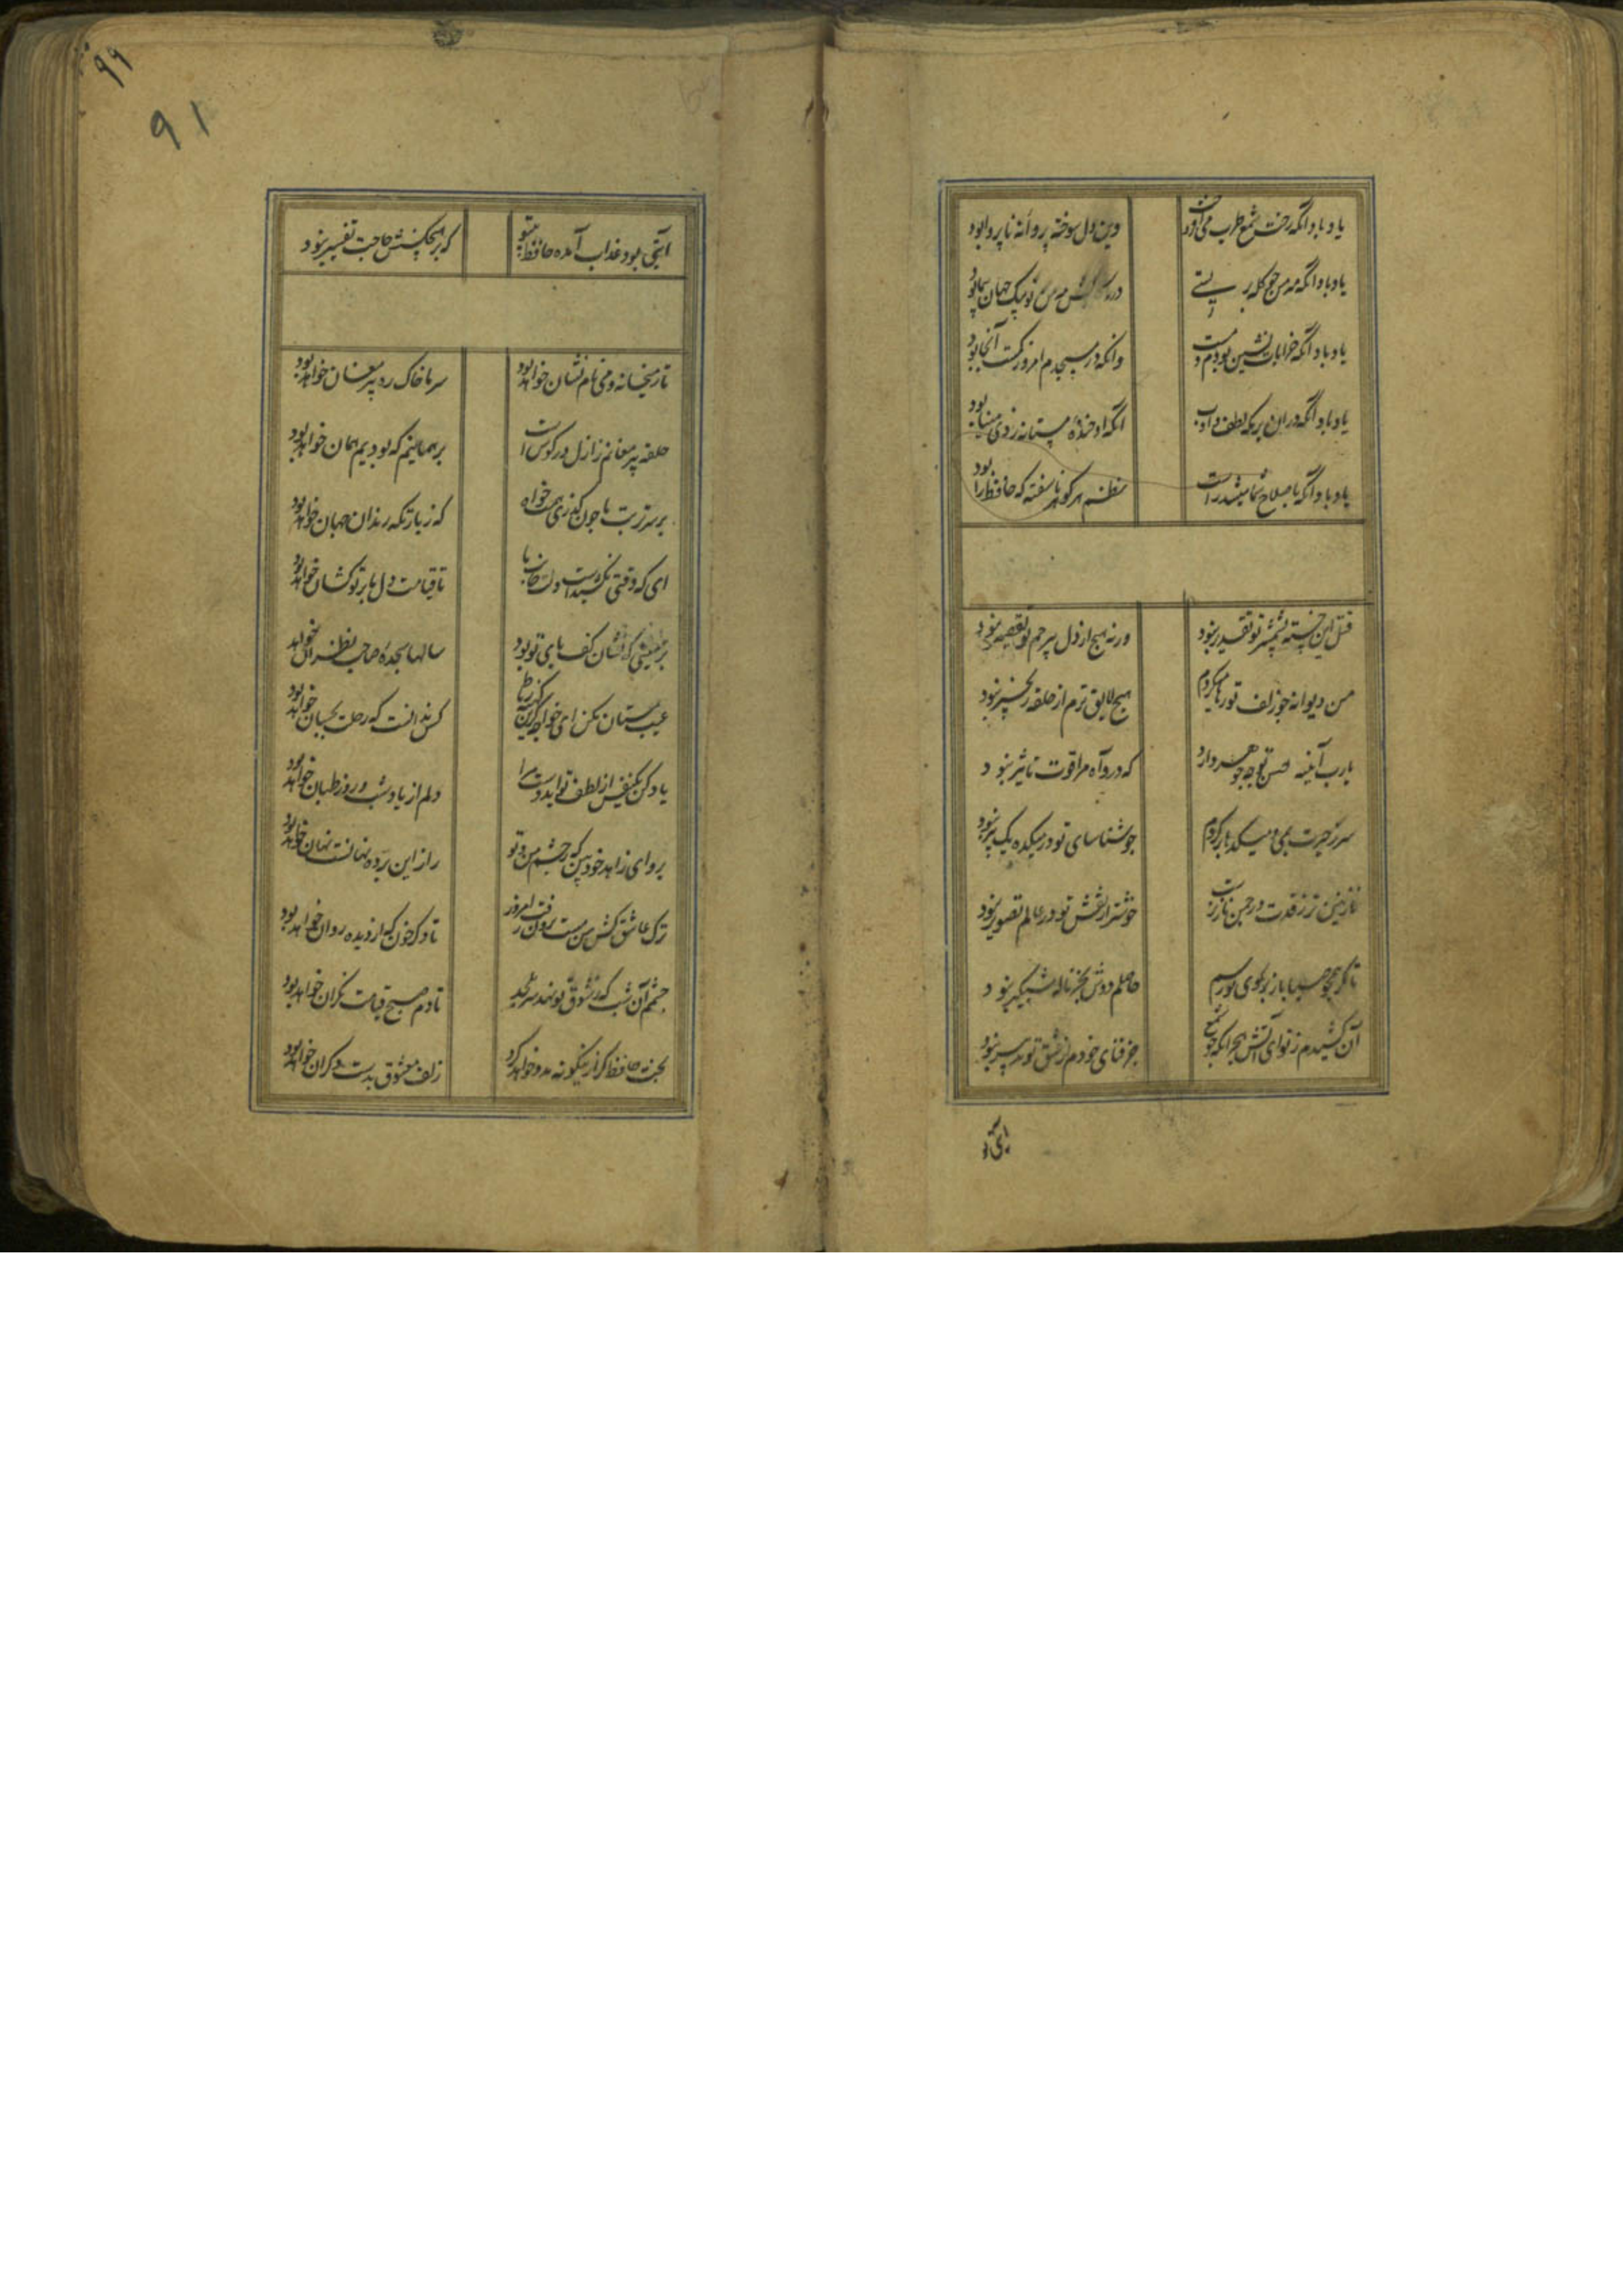 یاد باد آنکه رخت شمع طرب می افروخت
وین دل سوخته پروانه ناپروا بود
یاد باد آنکه مه من چو کله بر بستی
در رکابش مه نو پیک جهان پیما بود
یاد باد آنکه خرابات نشین بودم و مست
وانکه در مسجدم امروز کمست آنجا بود
یاد باد آنکه در ان بزمکه لطف و ادب
آنکه او خنده مستانه زدی مینا بود
یاد باد آنکه باصلاح شما میشد راست
نظم هر کوهر ناسفته که حافظ را بود
قتل این خسته بشمشیر تو تقدیر نبود
ورنه هیچ از دل بیرحم تو تقصیر نبود
من دیوانه چو زلف تو رها میکردم
هیچ لایق ترم از حلقه زنجیر نبود
یارب آیینه حسن تو چه جوهر دارد
که درو آه مرا قوت تاثیر نبود
سر ز حیرت بدر میکدها بر کردم
چو شناسای تو در میکده یک پیر نبود
نازنین تر ز قدت در چمن ناز نرست
خوشتر از نقش تو در عالم تصویر نبود
تا مکر همچو صبا باز بکوی تو رسم
حاصلم دوش بجز ناله شبکیر نبود
آن کشیدم ز تو ای آتش هجران که چو شمع
جز فنای خودم از عشق تو تدبیر نبود
آیتی بود
۹۹
۹۱
آیتی بود عذاب آمده حافظ بیتو
که بر هیچکسش حاجت تفسیر نبود
تا ز میخانه و می نام و نشان خواهد بود
سر ما خاک ره پیر مغان خواهد بود
حلقه پیر مغانم ز ازل در کوش است
بر همانیم که بودیم همان خواهد بود
بر سر تربت ما چون کذری همت خواه
که زیارتکه رندان جهان خواهد بود
تا قیامت دل ما بر تو کشان خواهد بود
بر زمینی که نشان کف پای تو بود
سالها سجده صاحب نظران خواهد بود
عیب مستان مکن ای خواجه کزین کهنه رباط
کس ندانست که رحلت بچسان خواهد بود
یاد کن یکنفس از لطف تو ای دوست مرا
دلم از یاد شب و روز طپان خواهد بود
برو ای زاهد خودبین که ز چشم من و تو
راز این پرده نهانست نهان خواهد بود
ترک عاشق کش من مست برون رفت امروز
تا دکر خون که از دیده روان خواهد بود
چشم آن شب که ز شوق تو نهد سر بلحد
تا دم صبح قیامت نکران خواهد بود
بخت حافظ کر ازینکونه مدد خواهد کرد
زلف معشوق بدست دکران خواهد بود